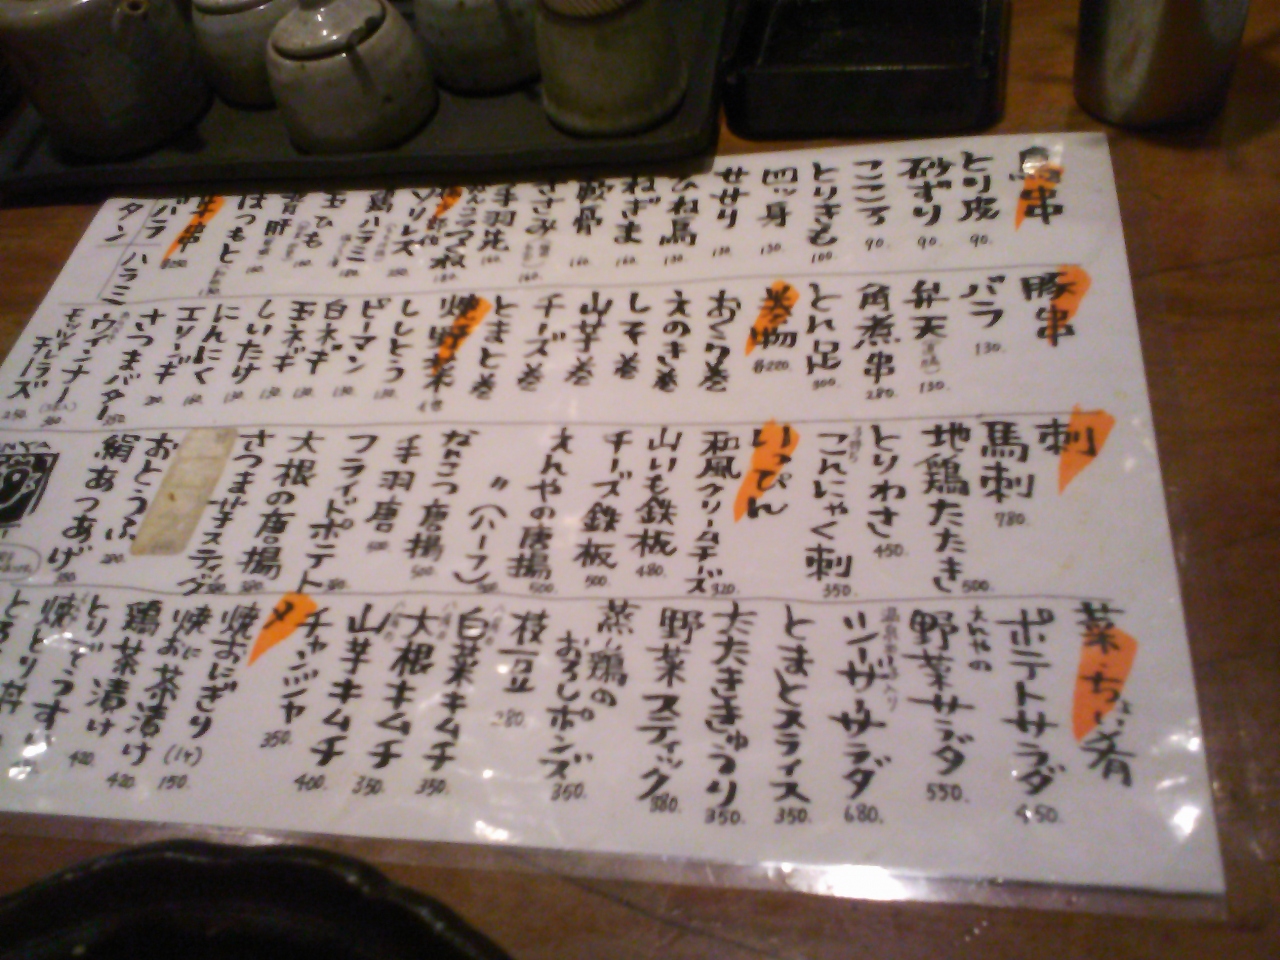 鳥串
とり皮 90.
砂ずり 90.
こころ 90.
とりきも 100
四ッ身 130.
せせり 130.
ひね鳥 130.
ねぎま 160.
軟骨 160.
ささみ 160.
手羽先 160.
ソリレス 250.
鶏ハラミ
玉ひも 160.
背肝 160.
はつもと
牛串
バラ ハラミ
タン
豚串
バラ 130.
弁天 130.
角煮串 280.
とん足 300.
巻物 各220.
おくら巻
えのき巻
しそ巻
山芋巻
チーズ巻
とまと巻
焼野菜
ししとう 130.
ピーマン 130.
白ネギ 130.
玉ネギ 130.
しいたけ 130.
にんにく 160.
エリンギ
さつまバター 250
ウインナー 300
モッツァレラチーズ 250.
刺
馬刺 780.
地鶏たたき 500.
とりわさ 450.
こんにゃく刺 350.
いっぴん
和風クリームチーズ 320.
山いも鉄板 480.
チーズ鉄板 500.
えんやの唐揚 500.
〃(ハーフ)
なんこつ唐揚 500.
手羽唐 500
フライドポテト
大根の唐揚
さつま芋スティック
おとうふ
絹あつあげ
菜・ちょい肴
ポテトサラダ 450.
えんやの野菜サラダ 550.
温泉玉子入り
シーザーサラダ 680.
とまとスライス 350.
たたききゅうり 350.
野菜スティック 380.
蒸し鶏のおろしポンズ 350.
枝豆 280.
白菜キムチ 350.
大根キムチ 350.
山芋キムチ 400.
チャンジャ 350.
〆
焼おにぎり (1ヶ) 150.
焼おに茶漬け 420
鶏茶漬け 420.
とりぞうすい
焼とり丼